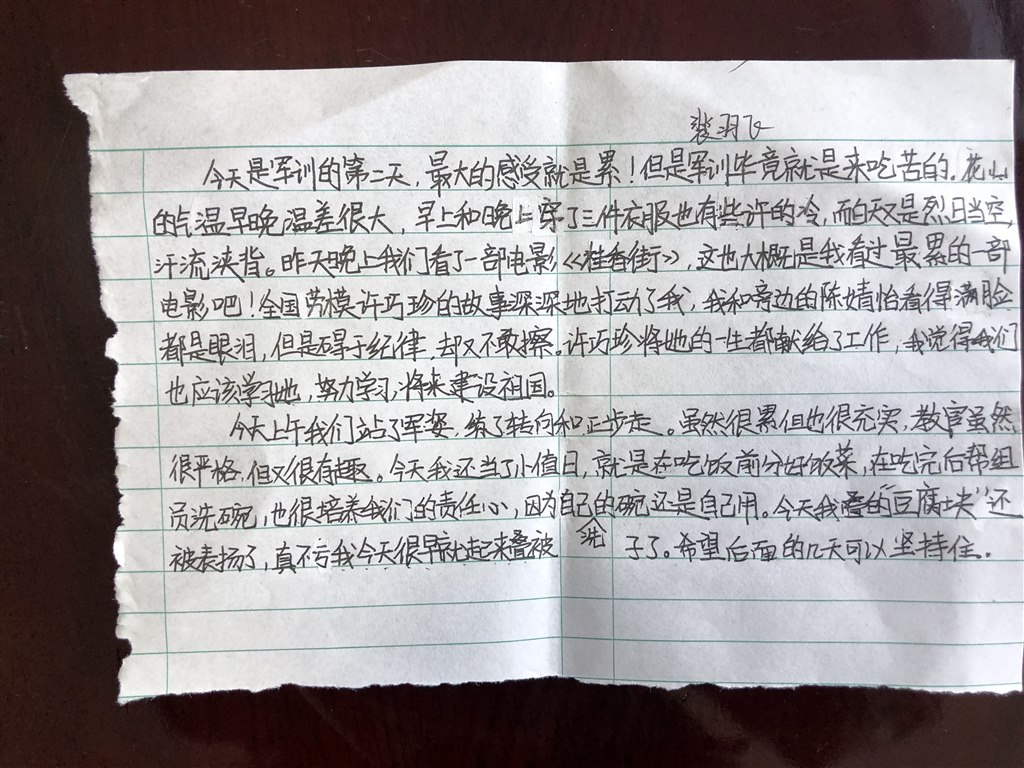 裴羽飞
今天是军训的第二天，最大的感受就是累！但是军训毕竟就是来吃苦的。花山
的气温早晚温差很大，早上和晚上穿了三件衣服也有些许的冷，而白天又是烈日当空，
汗流浃背。昨天晚上我们看了一部电影《桂香街》，这也大概是我看过最累的一部
电影吧！全国劳模许巧珍的故事深深地打动了我，我和旁边的陈婧怡看得满脸
都是眼泪，但是碍于纪律，却又不敢擦。许巧珍将她的一生都献给了工作，我觉得我们
也应该学习她，努力学习，将来建设祖国。
今天上午我们站了军姿，练了转向和正步走。虽然很累但也很充实，教官虽然
很严格，但又很有趣。今天我还当了小值日，就是在吃饭前分好饭菜，在吃完后帮组
员洗碗，也很培养我们的责任心，因为自己的碗还是自己洗用。今天我叠的“豆腐块”还
被表扬了，真不亏我今天很早就起来叠被子了。希望后面的几天可以坚持住。